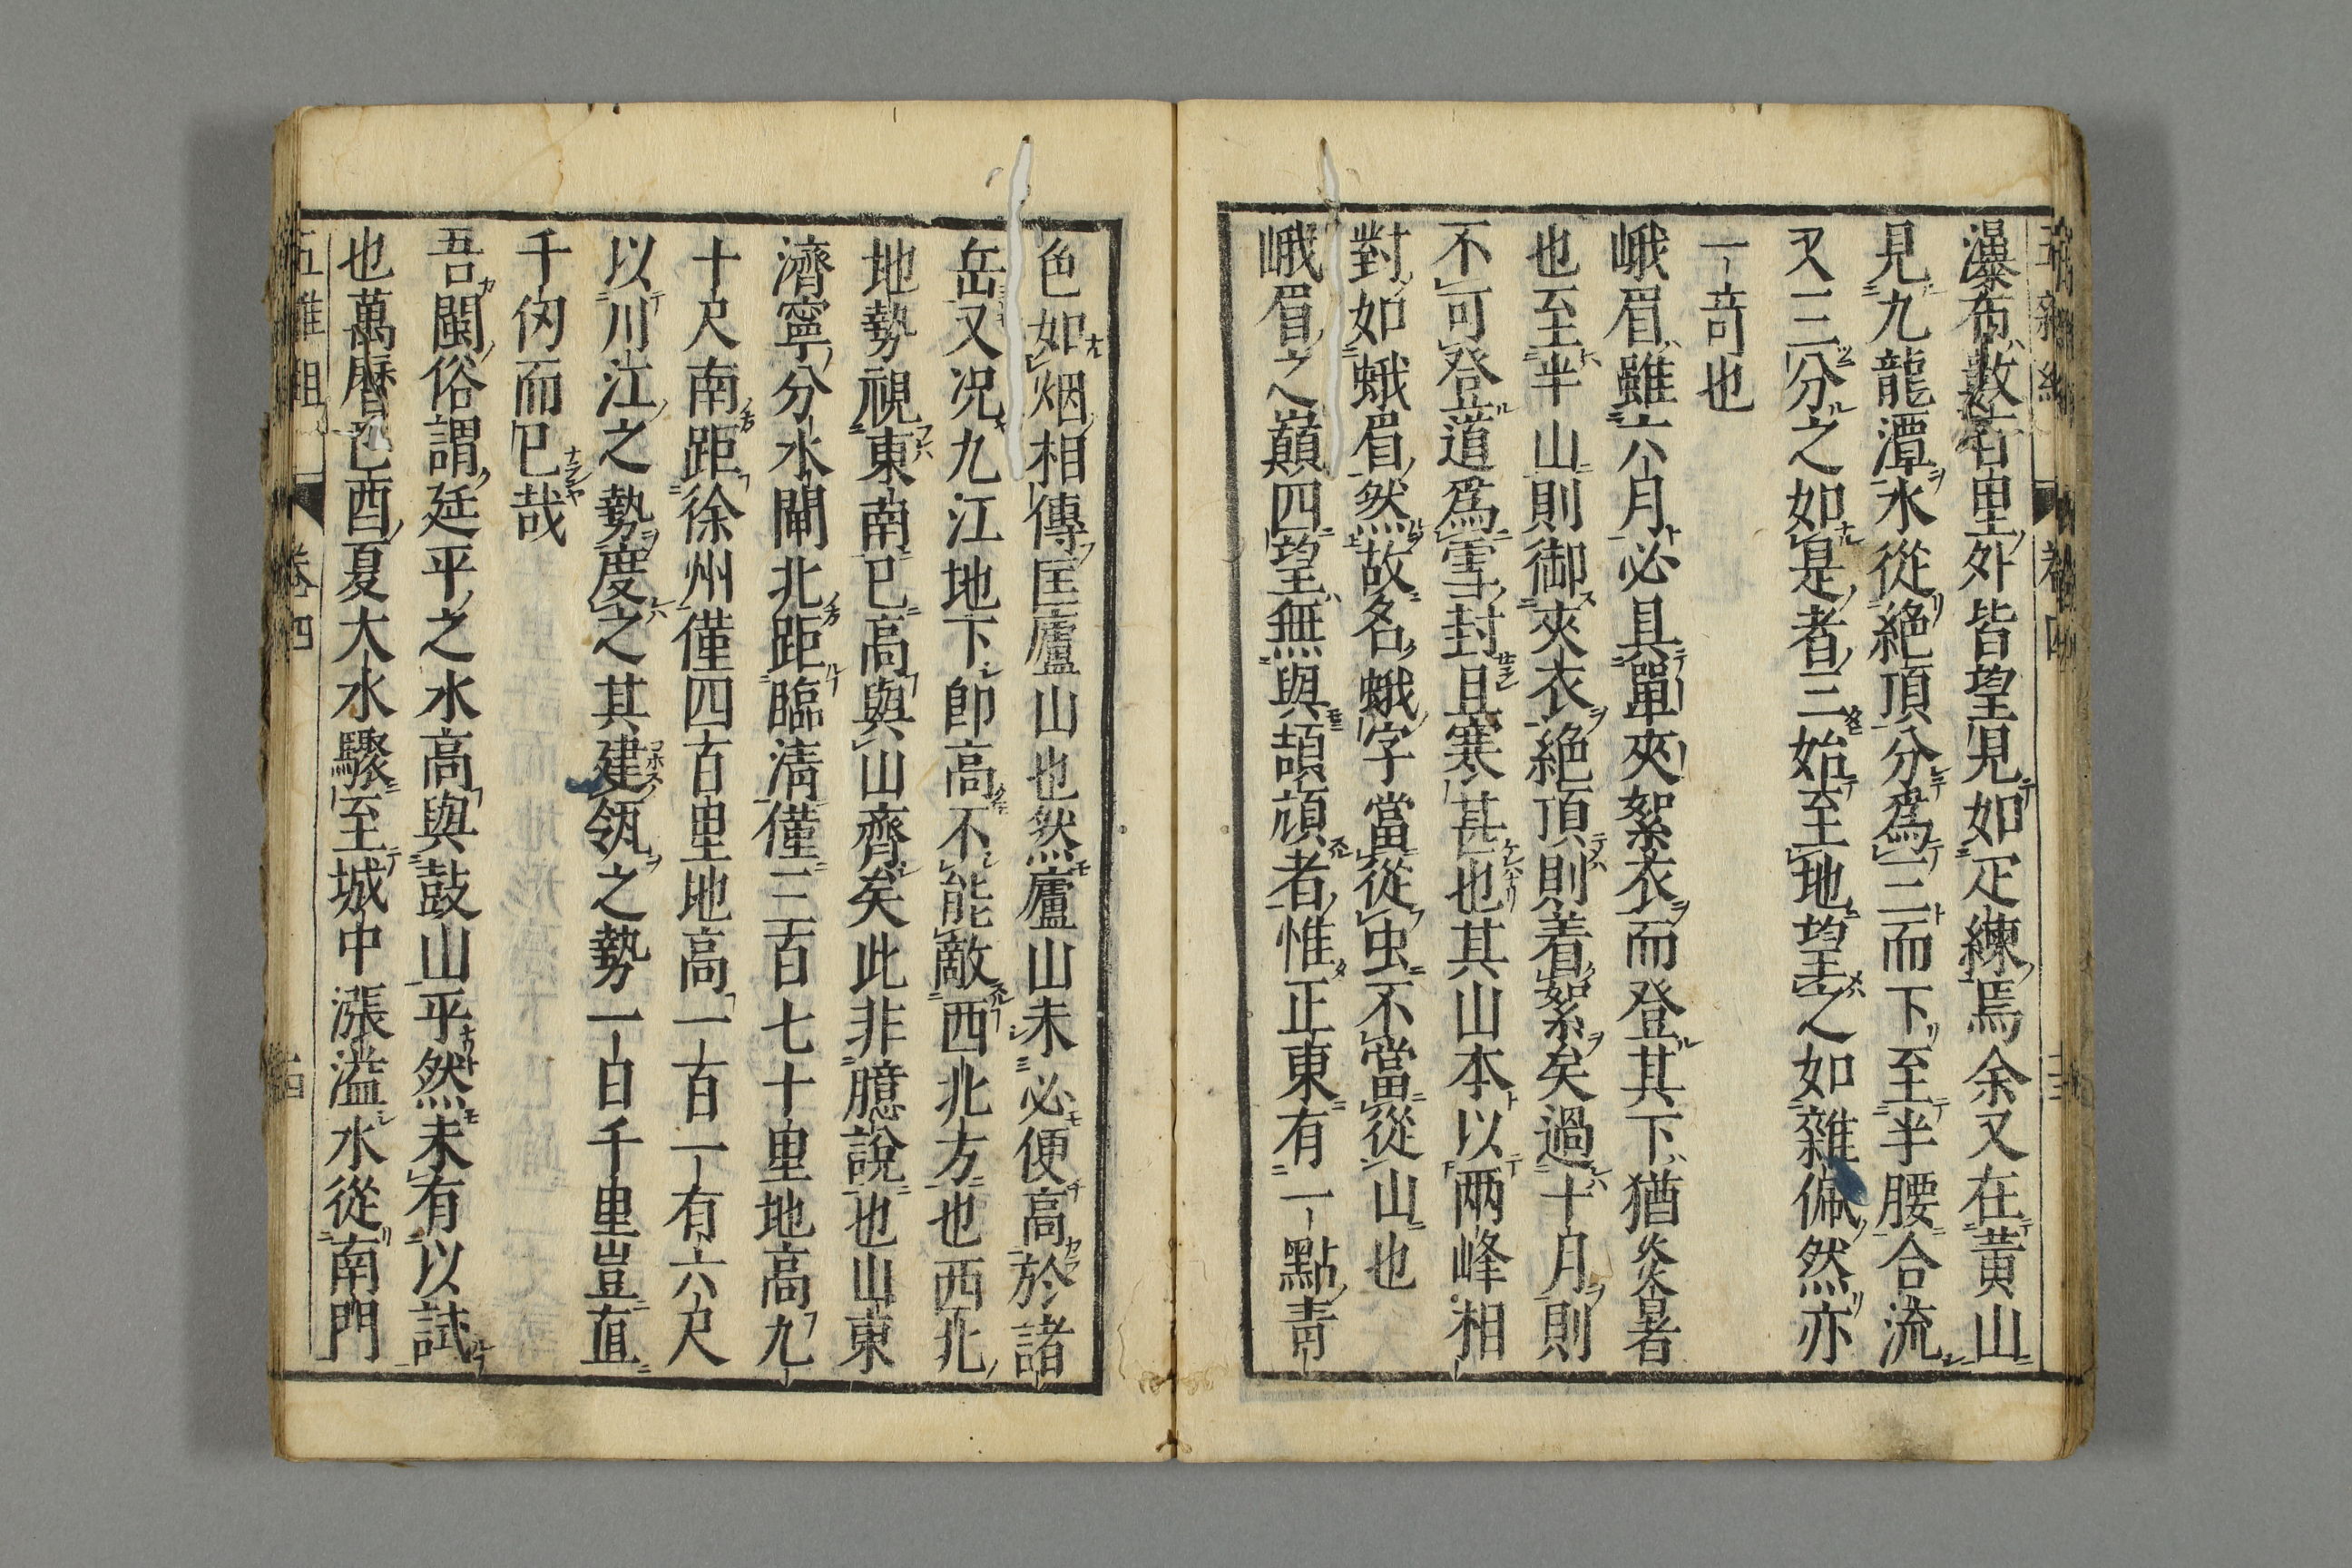 瀑布數百里外皆望見如疋練焉余又在黃山
見九龍潭水從絕頂分爲三而下至半腰合流
又三分之如是者三始至地望之如雜佩然亦
一竒也
峨眉雖六月必具單夾絮衣而登其下猶炎暑
也至半山則御夾衣絕頂則着絮矣過十月則
不可登道爲雪封且寒甚也其山本以兩峰相
對如蛾眉然故名蛾字當從虫不當從山也
峨眉之巔四望無與頡頏者惟正東有一點靑
色如烟相傳匡廬山也然廬山未必便高於諸
岳又况九江地下卽高不能敵西北方也西北
地勢視東南已高與山齊矣此非臆說也山東
濟寧分水閘北距臨淸僅三百七十里地高九
十尺南距徐州僅四百里地高一百一有六尺
以川江之勢度之其建瓴之勢一白千里豈直
千仭而已哉
吾閩俗謂延平之水高與鼓山平然未有以試
也萬曆己酉夏大水驟至城中漲溢水從南門
五雜組 卷四